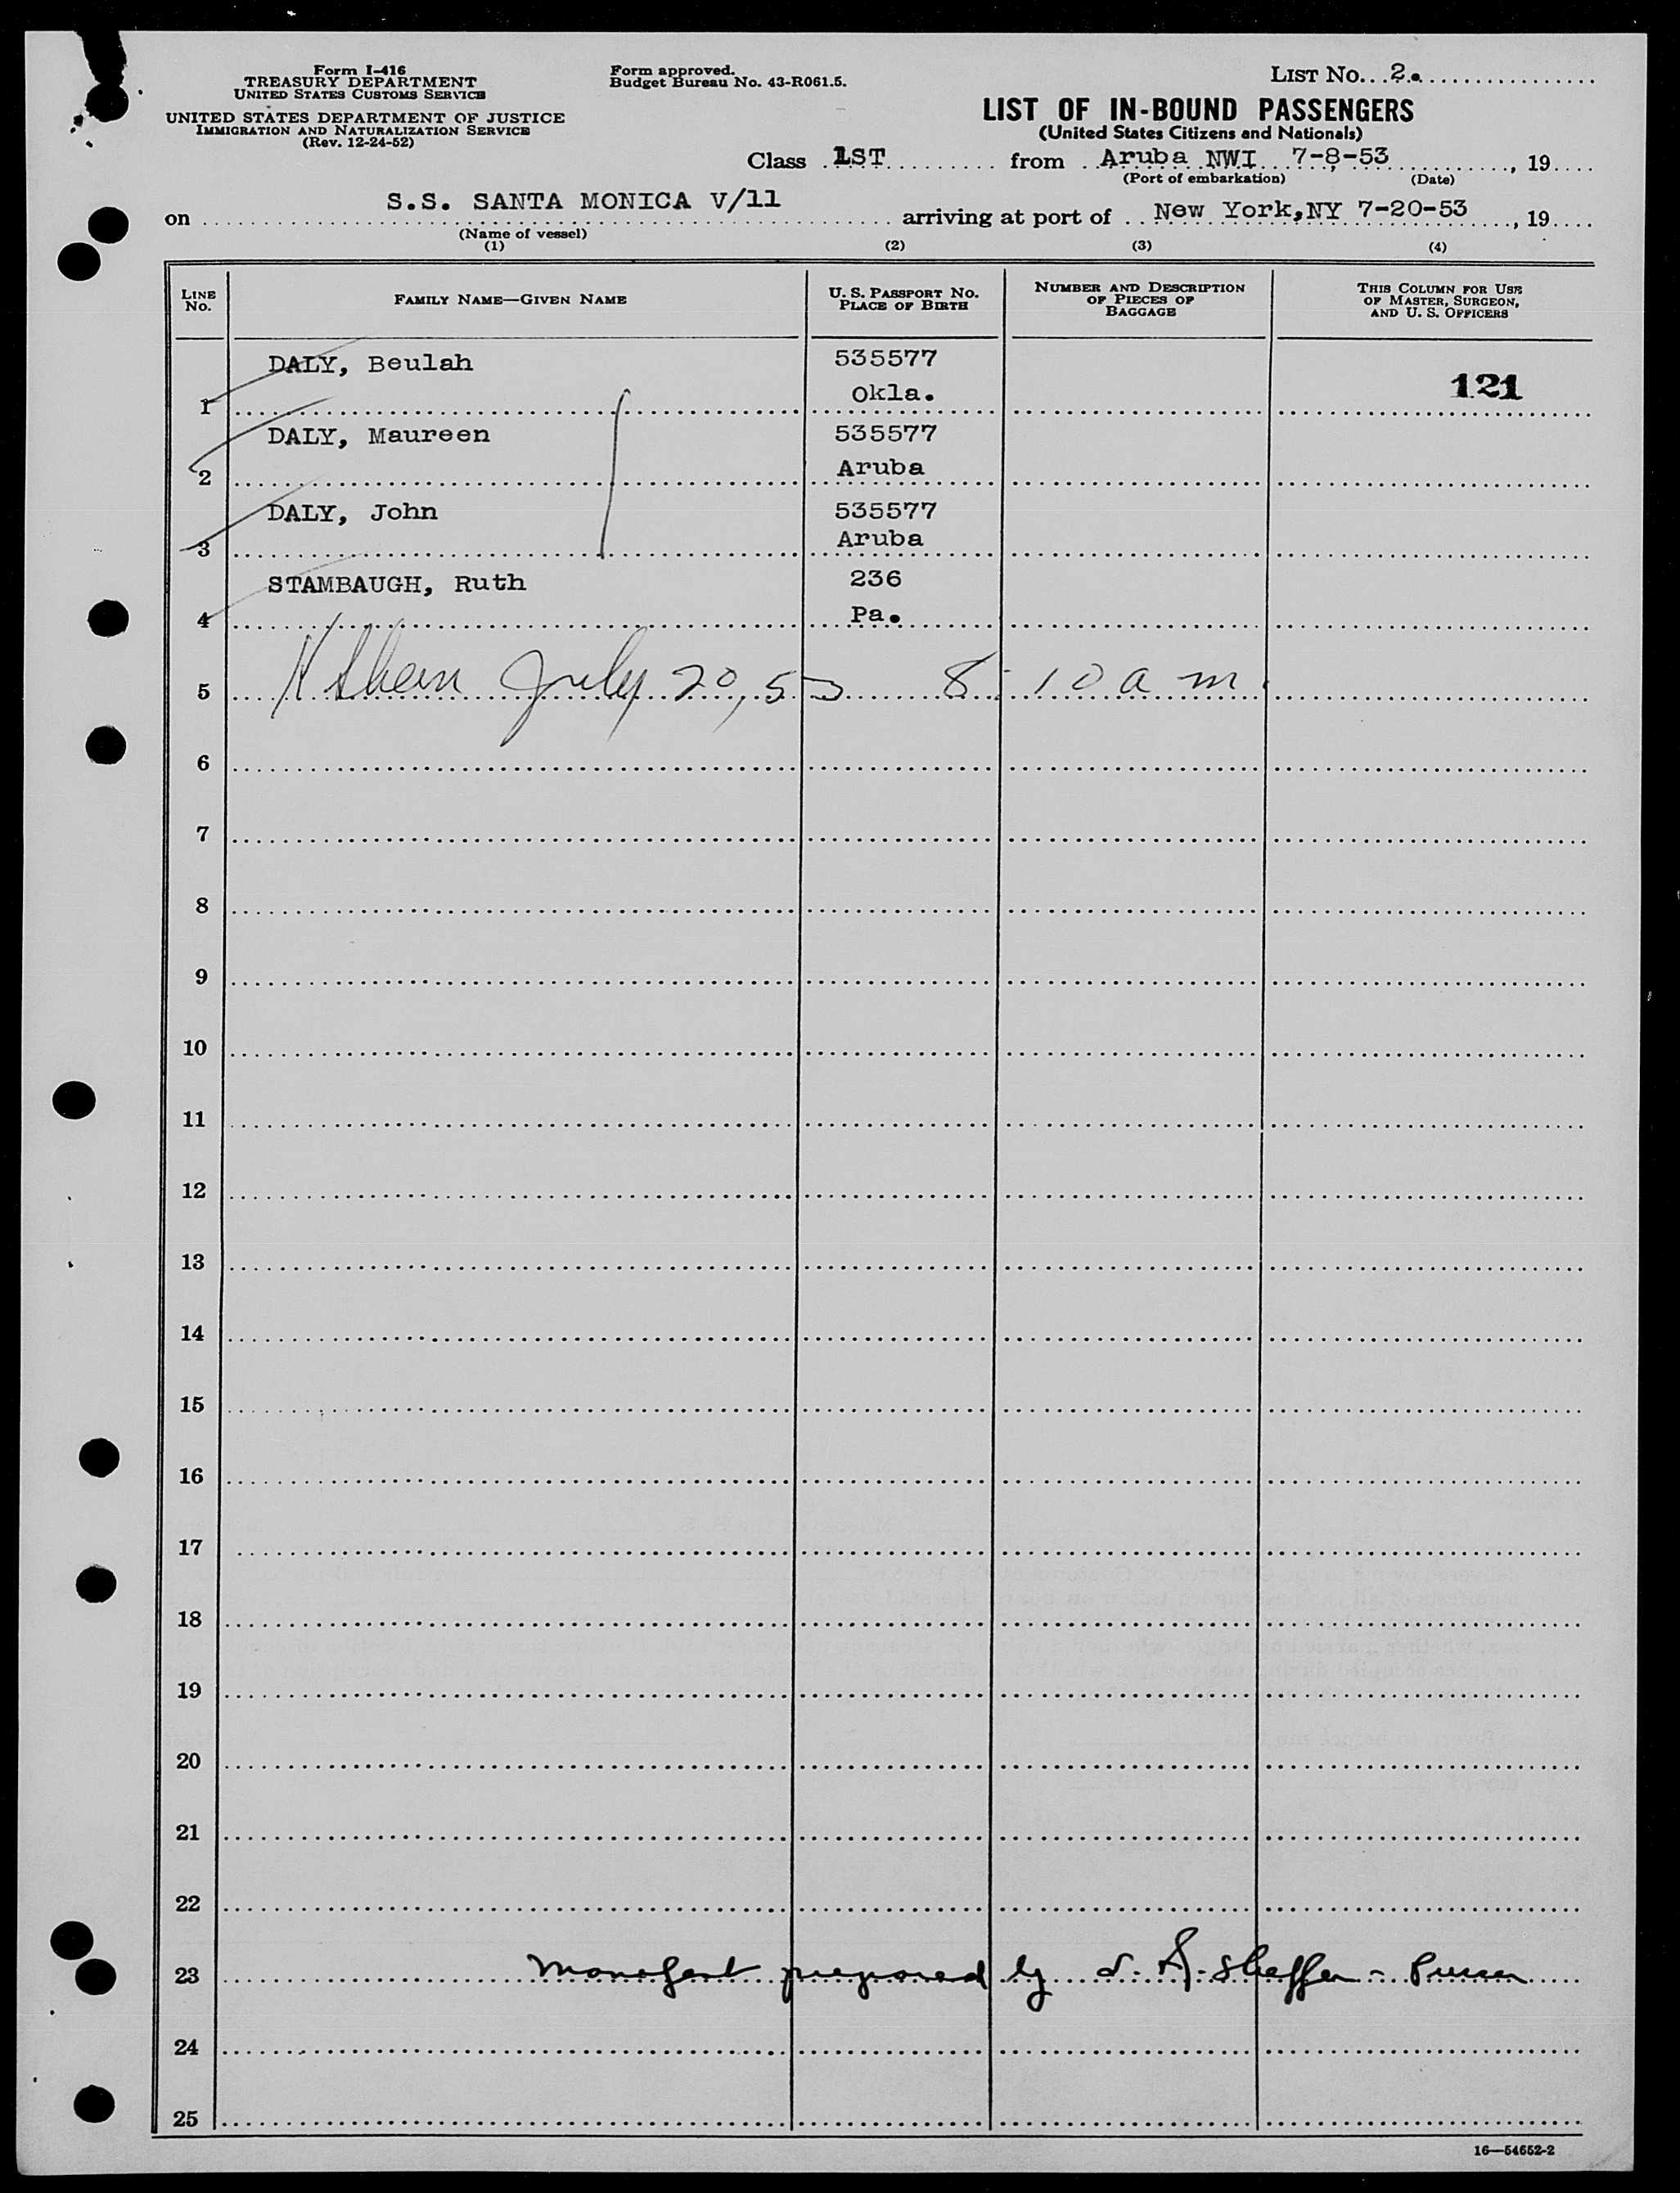 Form I-416
TREASURY DEPARTMENT
UNITED STATES CUSTOMS SERVICE
UNITED STATES DEPARTMENT OF JUSTICE
IMMIGRATION AND NATURALIZATION SERVICE
(Rev. 12-24-52)
Form approved.
Budget Bureau No. 43-R061.5.
LIST No. 2.
LIST OF IN-BOUND PASSENGERS
(United States Citizens and Nationals)
Class 1ST from Aruba NWI 7-8-53, 19
(Port of embarkation) (Date)
on S.S. SANTA MONICA V/11 arriving at port of New York,NY 7-20-53, 19
(Name of vessel)
(1) (2) (3) (4)
LINE No. FAMILY NAME—GIVEN NAME U. S. PASSPORT No. PLACE OF BIRTH NUMBER AND DESCRIPTION OF PIECES OF BAGGAGE THIS COLUMN FOR USE OF MASTER, SURGEON, AND U. S. OFFICERS
DALY, Beulah 535577
1 Okla. 121
DALY, Maureen 535577
2 Aruba
DALY, John 535577
3 Aruba
STAMBAUGH, Ruth 236
4 Pa.
5 July 20, 53 8:10 a m.
6
7
8
9
10
11
12
13
14
15
16
17
18
19
20
21
22
23 Manefest prepared by A. Sheffer - Purser
24
25
16—54652-2